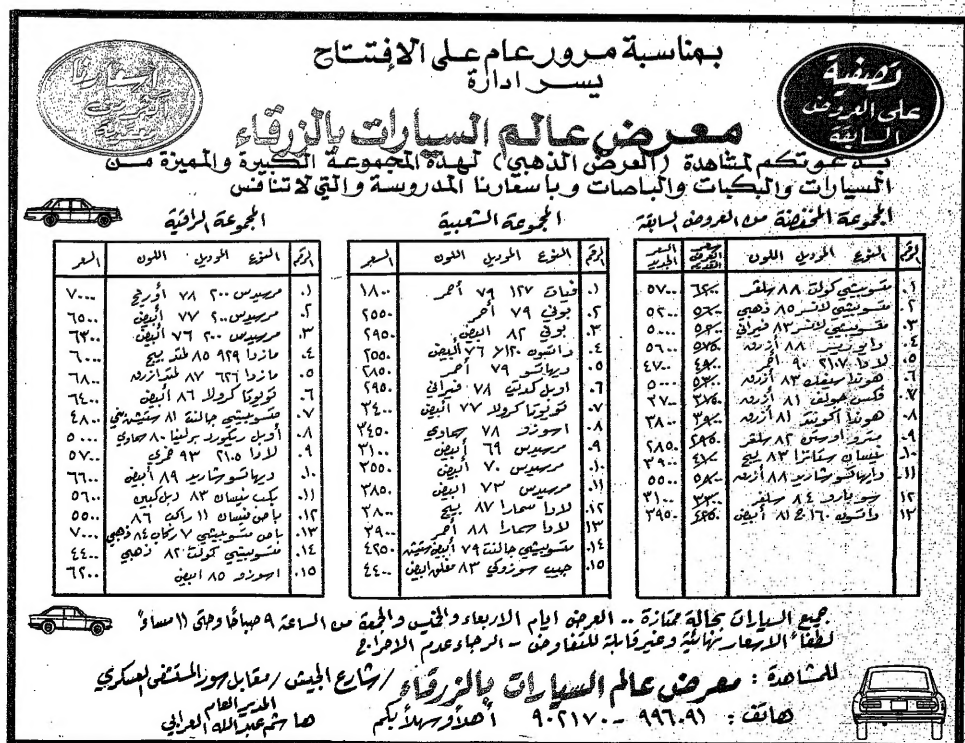 بمناسبة مرور عام على الإفتتاح
يسر ادارة
تصفية
على العروض
السابقة
اسعارنا
معرض عالم السيارات بالزرقاء
بدعوتكم لمشاهدة (العرض الذهبي) لهذه المجموعة الكبيرة والمميزة من
السيارات والبكبات والباصات وبأسعارنا المدروسة والتي لا تنافس
المجموعة المخفضة من العروض السابقة
الرقم النوع الموديل اللون سعر العرض القديم السعر الجديد
١. متسوبيشي كولت ٨٨ سلفر ٦٢٠٠ ٥٧٠٠
٢. متسوبيشي لانسر ٨٥ ذهبي ٥٢٠٠
٣. متسوبيشي لانسر ٨٣ فيراني
٤. دايو ريسر ٨٨ أزرق ٥٦٠٠
٥. لادا ٢١٠٧ ٩٠ أحمر ٤٧٠٠
٦. هوندا سيفك ٨٣ أزرق ٥٠٠٠
٧. فكس جولف ٨١ أزرق ٢٧٠٠
٨. هوندا اكوند ٨١ أزرق ٣٨٠٠
٩. مترو اوستن ٨٢ سلفر ٢٨٥٠
١٠. نيسان ستانزا ٨٣ بيج ٣٩٠٠
١١. دايهاتسو شاريد ٨٨ أزرق ٥٥٠٠
١٢ سوبارو ٨٤ سلفر ٣١٠٠
١٣ داتسون ١٦٠ ج ٨١ أبيض ٣٩٥٠
المجموعة الشعبية
الرقم النوع الموديل اللون السعر
١. فيات ١٢٧ ٧٩ أحمر ١٨٠٠
٢. بوني ٧٩ أحمر ٢٥٥٠
٣. بوني ٨٢ ابيض ٢٩٥٠
٤. داتسون ١٢٠ل ٧٦ أبيض ٢٥٥٠
٥. ديهاتسو ٧٩ أحمر ٢٨٥٠
٦. اوبل كديت ٧٨ فيراني ٢٩٥٠
٧. تويوتا كرولا ٧٧ ابيض ٣٤٠٠
٨. اسوزو ٧٨ سماوي ٣٤٥٠
٩. مرسيدس ٦٩ أبيض ٣١٠٠
١٠. مرسيدس ٧٠ أبيض ٣٥٥٠
١١. مرسيدس ٧٣ ابيض ٣٨٥٠
١٢. لادا سمارا ٨٧ بيج ٣٨٠٠
١٣ لادا سمارا ٨٨ أحمر ٣٩٠٠
١٤. متسوبيشي جالنت ٧٩ أبيض ستيشن ٤٢٥٠
١٥. جيب سوزوكي ٨٣ مغلق ابيض ٤٤٠٠
المجموعة الراقية
الرقم النوع الموديل اللون السعر
١. مرسيدس ٢٠٠ ٧٨ أورنج ٧٠٠٠
٢. مرسيدس ٢٠٠ ٧٧ أبيض ٦٥٠٠
٣. مرسيدس ٢٠٠ ٧٦ أبيض ٦٣٠٠
٤. مازدا ٩٢٩ ٨٥ لمتد بيج ٦٠٠٠
٥. مازدا ٦٢٦ ٨٧ لمتد ازرق ٦٨٠٠
٦. تويوتا كرولا ٨٦ أبيض ٦٤٠٠
٧. متسوبيشي جالنت ٨١ ستيشن بيجي ٤٨٠٠
٨. أوبل ريكورد برلينا ٨٠ سماوي ٥٠٠٠
٩. لادا ٢١٠٥ ٩٣ خمري ٥٧٠٠
١٠. ديهاتسو شاريد ٨٩ أبيض ٦٦٠٠
١١. بكب نيسان ٨٣ دبل كبين ٥٦٠٠
١٢. باص نيسان ١١ راكب ٨٦ ٥٥٠٠
١٣. باص متسوبيشي ٧ ركاب ٨٤ ذهبي ٧٠٠٠
١٤. متسوبيشي كولت ٨٢ ذهبي ٤٤٠٠
١٥. اسوزو ٨٥ ابيض ٦٢٠٠
جميع السيارات بحالة ممتازة .. العرض ايام الاربعاء والخميس والجمعة من الساعة ٩ صباحًا وحتى ١١ مساءً
لطفاً الاسعار نهائية وغير قابلة للتفاوض - الرجاء عدم الاحراج
للمشاهدة : معرض عالم السيارات بالزرقاء / شارع الجيش / مقابل سور المستشفى العسكري
هاتف : ٩٩٦٠٩١ - ٩٠٢١٧٠ أهلاً وسهلاً بكم
المدير العام
هاشم عبدالله العرابي